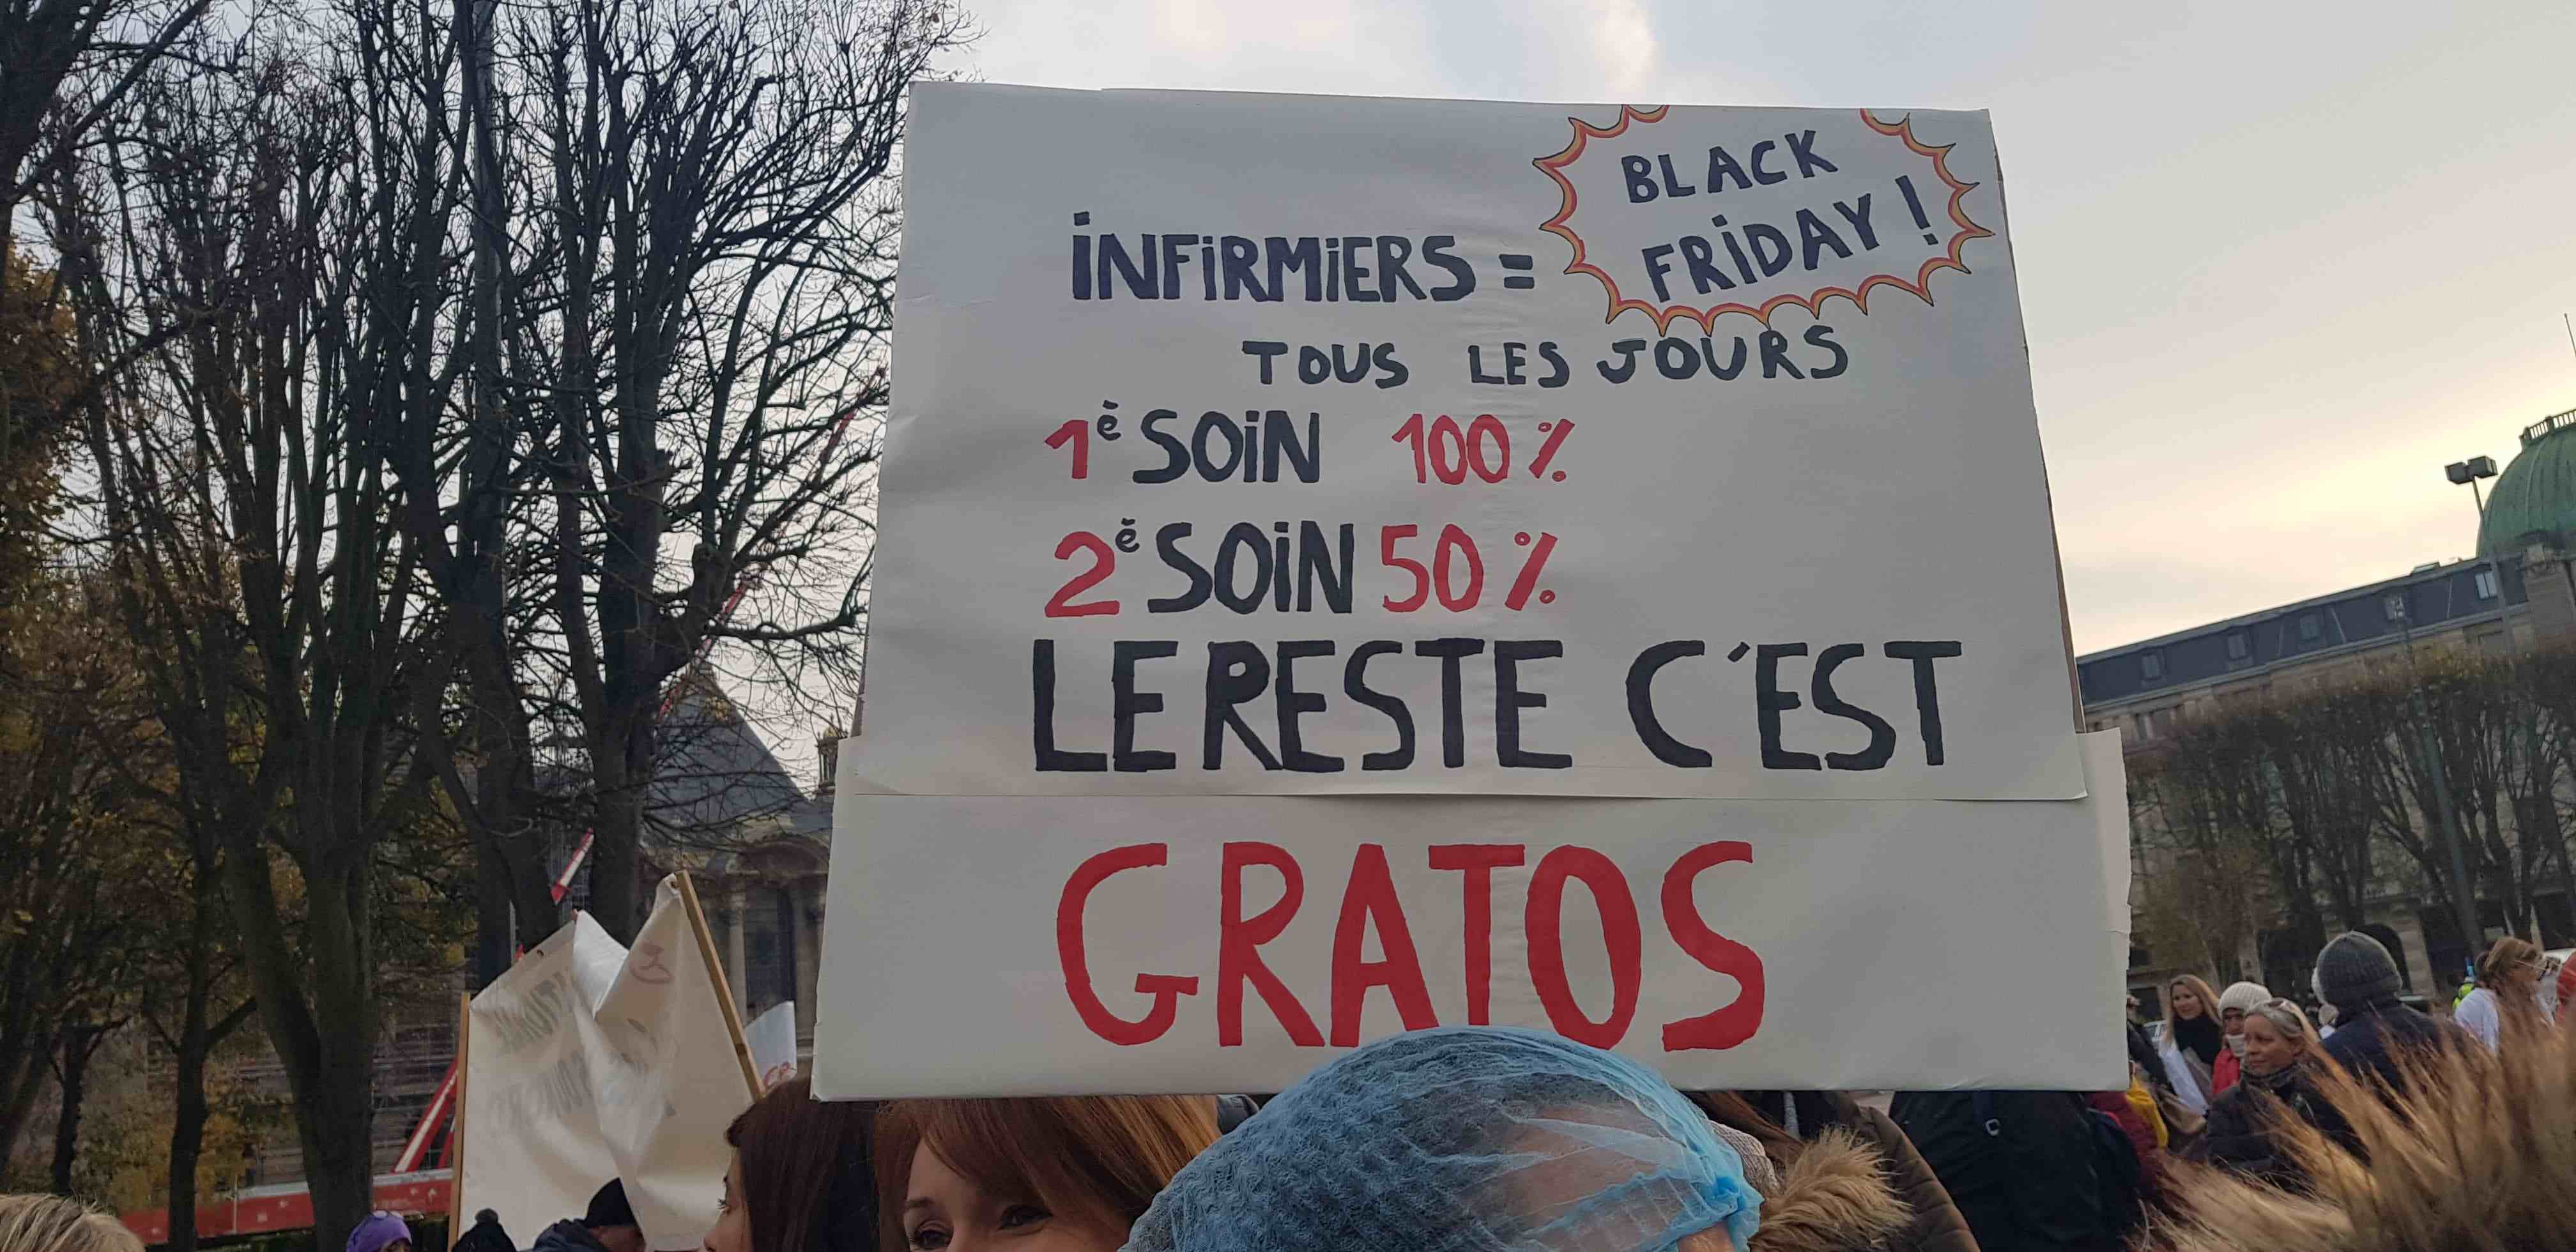 BLACK
FRiDAY !
iNFiRMiERS =
TOUS LES JOURS
1è SOiN 100 %
2è SOiN 50 %
LE RESTE C'EST
GRATOS